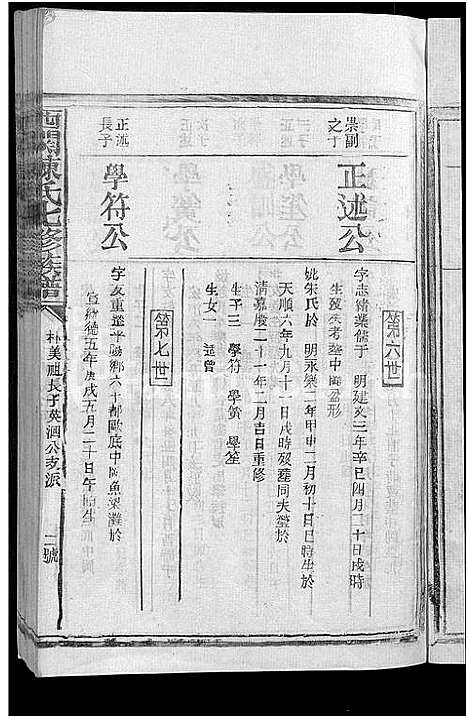 第六世
崇副
之子
正述公
字志緒業儒于 明建文三年辛巳四月二十日戌時
生歿失考葬中岡盆形
妣朱氏於 明永樂二年甲申二月初十日巳時生於
天順六年九月十一日戌時歿葬同夫塋於
清嘉慶二十一年二月吉日重修
生子三 學符 學簧 學笙
生女一 適曾
第七世
正述
長子
學符公
字友重遷平陵鄉六十都歐底中岡魚梁灘於
宣德五年庚戌五月二十日午時生
西關陳氏七修族譜
朴美祖長子英泗公支派
二號